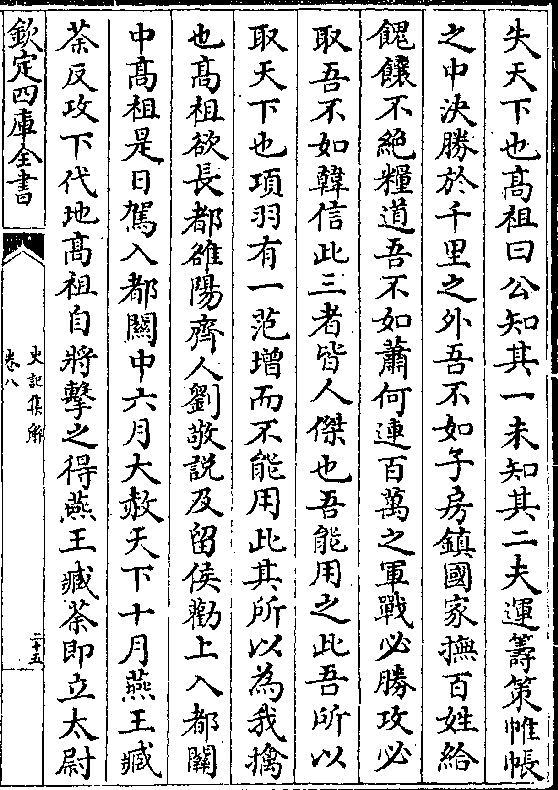 失天下也高祖曰公知其一未知其二夫運籌策帷帳
之中決勝於千里之外吾不如子房鎮國家撫百姓給
餽饟不絶糧道吾不如蕭何連百萬之軍戰必勝攻必
取吾不如韓信此三者皆人傑也吾能用之此吾所以
取天下也項羽有一范增而不能用此其所以為我擒
也高祖欲長都雒陽齊人劉敬説及留侯勸上入都關
中高祖是日駕入都關中六月大赦天下十月燕王臧
荼反攻下代地高祖自將擊之得燕王臧荼即立太尉
欽定四庫全書
史記集解
卷八
二十五